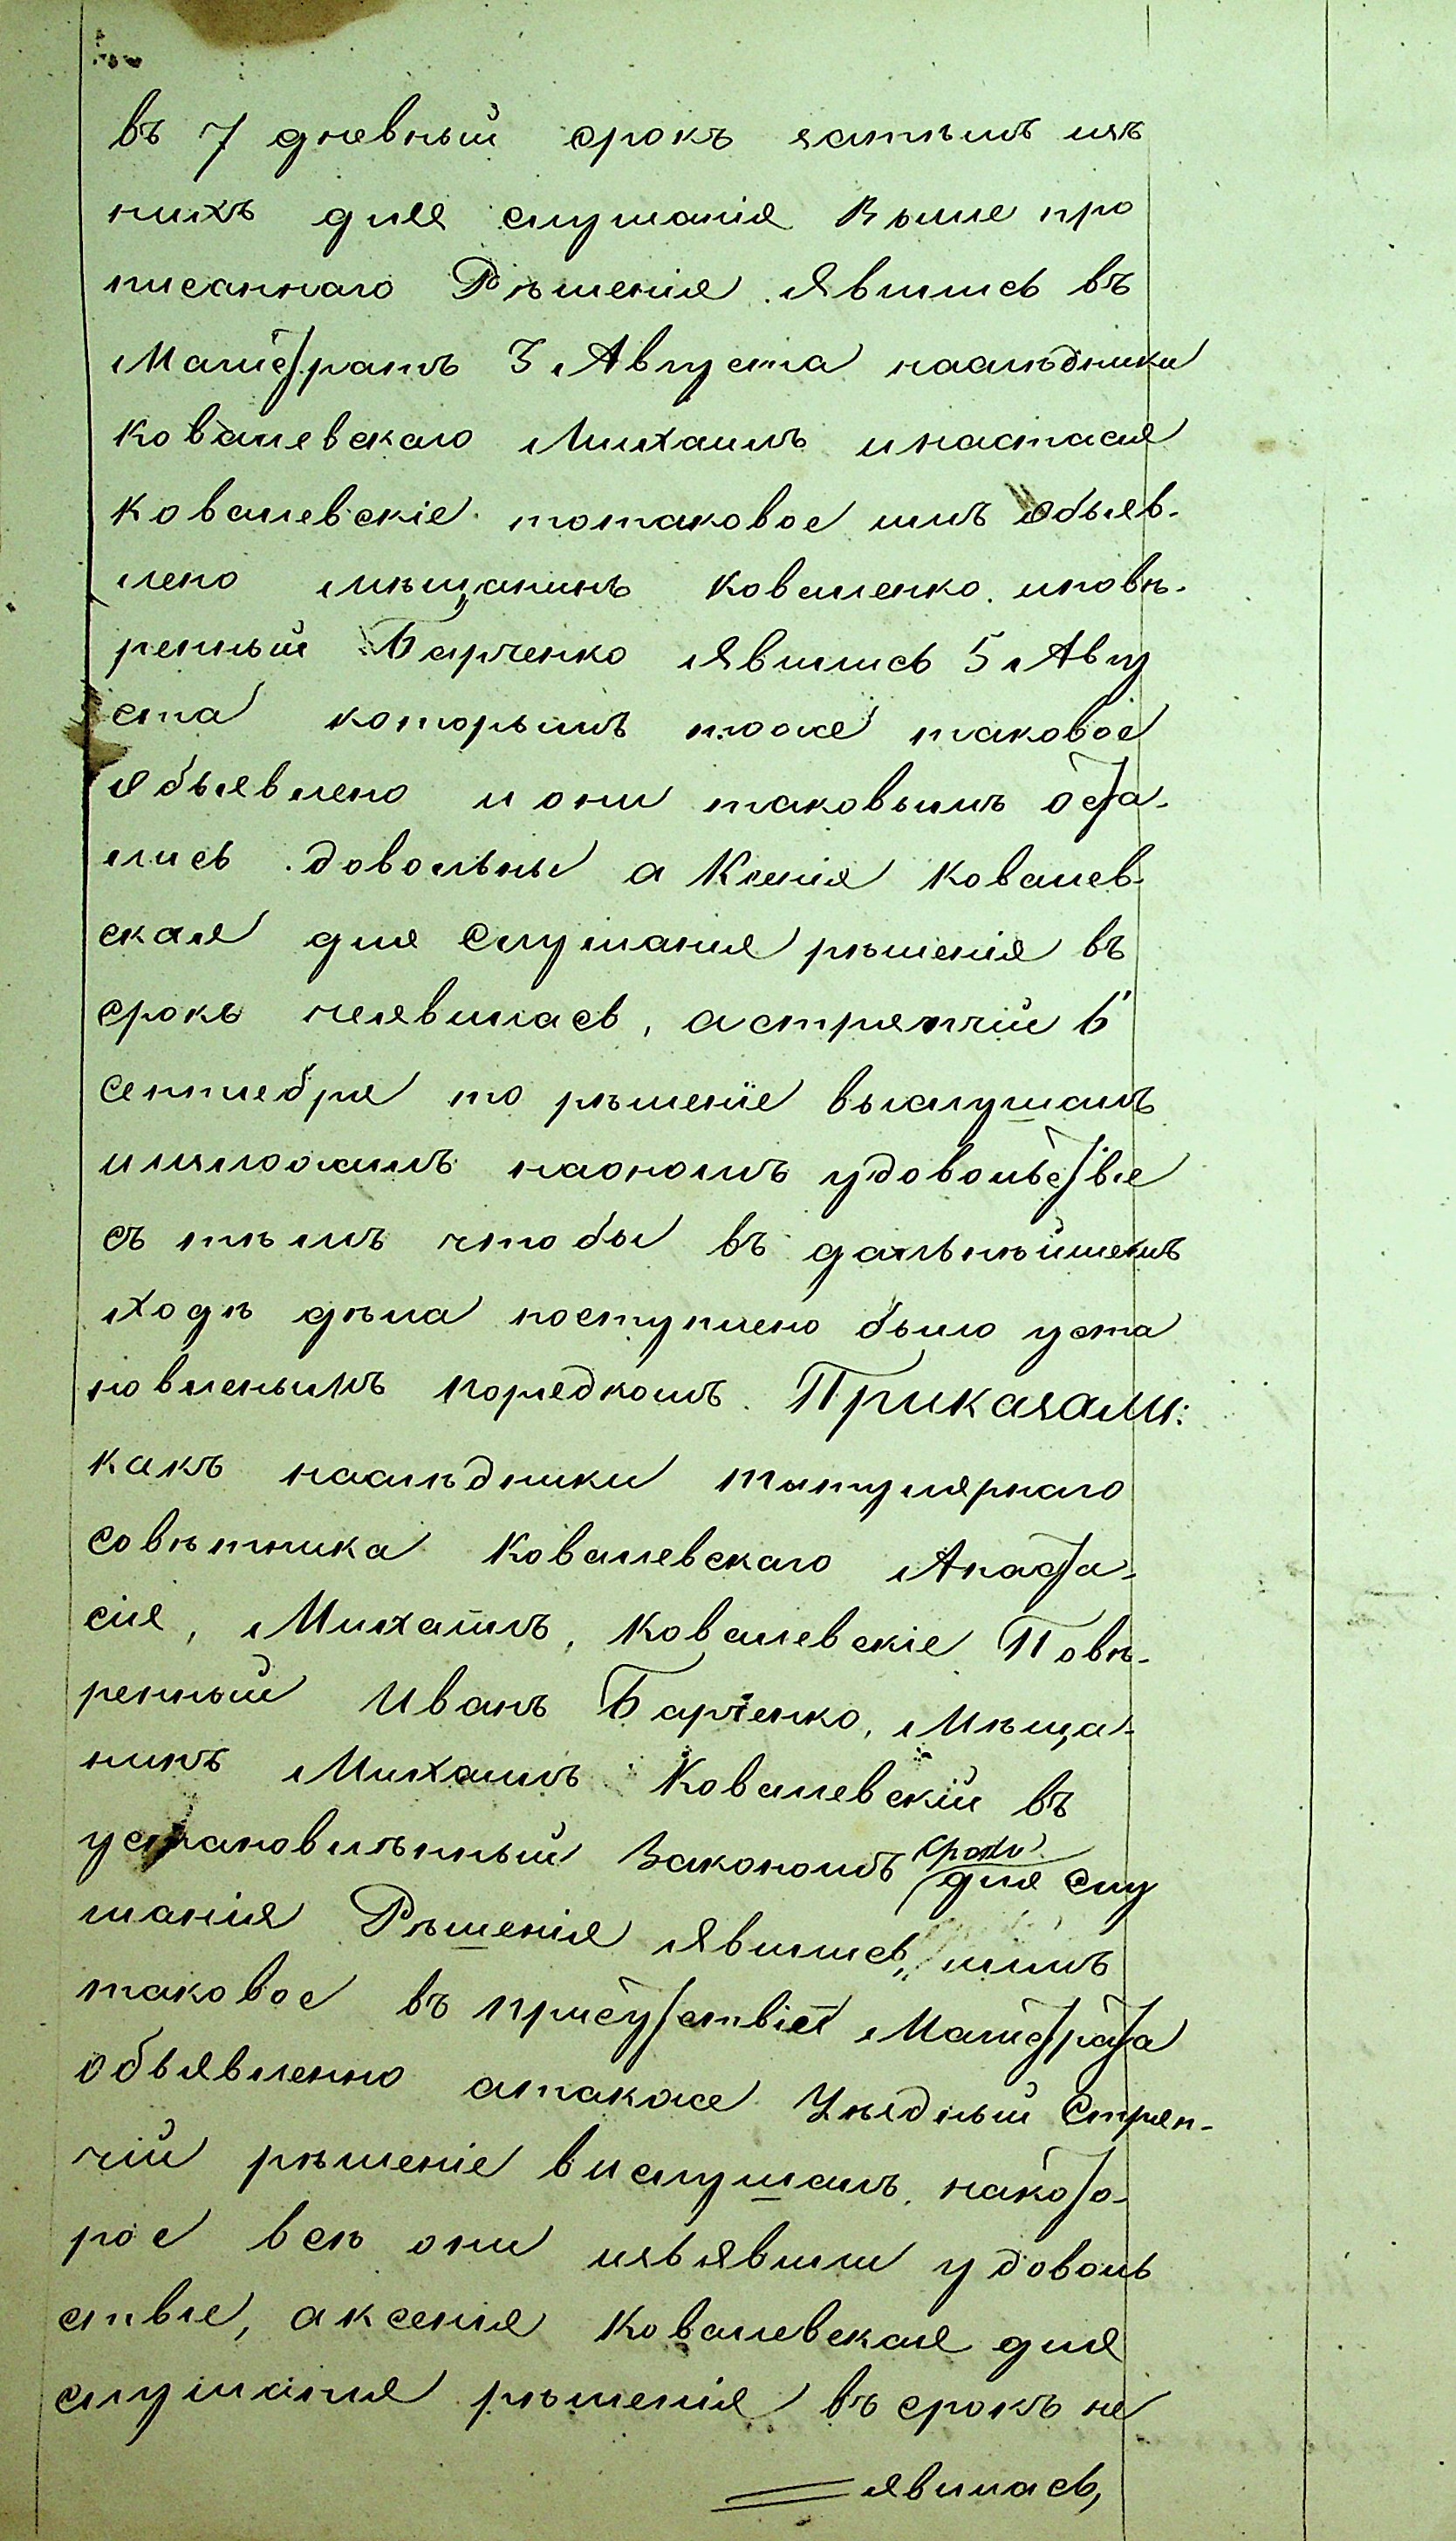 въ 7 дневный срокъ затѣмъ изъ
нихъ для слушанія Выше про
писаннаго Рѣшенія явились въ
Магистратъ 3 Августа наслѣдники
Ковалевскаго Михаилъ инастасія
Ковалевскіе тотаковое имъ объяв-
лено мѣщанинъ Коваленко иповѣ-
ренный Барченко явились 5 Авгу
ста которымъ тоже таковое
объявлено и они таковымъ оста-
лись довольны а Ксенія Ковалев-
ская для слушания рѣшенія въ
срокъ неявилась, астряпчій 6
сентября то рѣшеніе выслушалъ
иизложилъ наономъ удовольствіе
съ тѣмъ чтобы въ дальнѣйшемъ
ходѣ дѣла поступлено было уста
новленымъ порядкомъ. Приказали:
какъ наслѣдники титулярнаго
совѣтника Ковалевскаго Анаста-
сія, Михаилъ, Ковалевскіе Повѣ-
ренный Иванъ Барченко, мѣща-
нинъ Михаилъ Ковалевскій въ
установилѣнный Закономъ срокъ для слу
шанія Рѣшенія явились, иимъ
таковое въ присуствіи Магистрата
объявленно атакже Уѣздный Стряп-
чій рѣшеніе выслушалъ, накото-
рое всѣ они изъявили удоволь
ствіе, аксенія Ковалевская для
слушанія рѣшенія въ срокъ не
явилась,